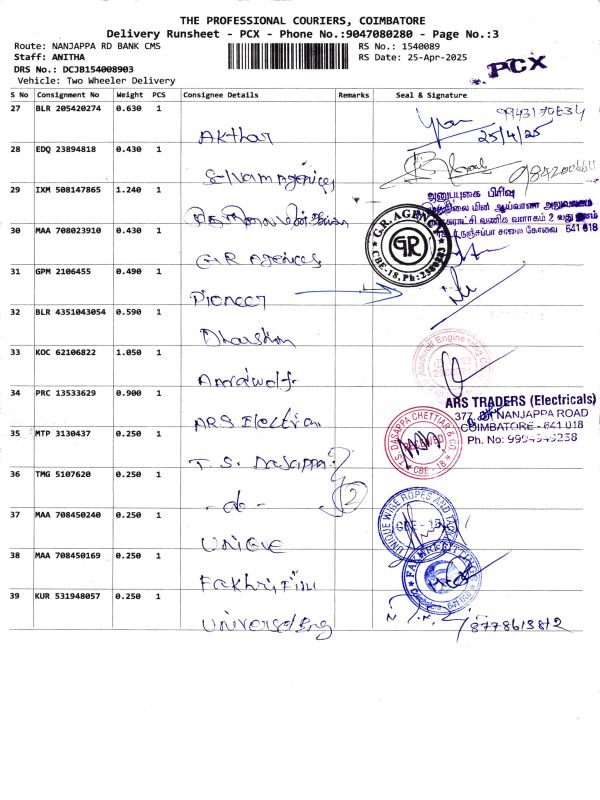 THE PROFESSIONAL COURIERS, COIMBATORE
Delivery Runsheet - PCX - Phone No.:9047080280 - Page No.:3
Route: NANJAPPA RD BANK CMS
RS No.: 1540089
Staff: ANITHA
RS Date: 25-Apr-2025
DRS No.: DCJB154008903
Vehicle: Two Wheeler Delivery
PCX
S No Consignment No Weight PCS Consignee Details Remarks Seal & Signature
27 BLR 205420274 0.630 1
Akthar
25/4/25
28 EDQ 23894818 0.430 1
Selvam Agencies
29 IXM 508147865 1.240 1
அனுப்புகை பிரிவு
30 MAA 708023910 0.430 1
G.R Agences
G.R. AGENCY
GR
CBE-18, Ph: 2380283
641 018
31 GPM 2106455 0.490 1
Pioneer
32 BLR 4351043054 0.590 1
Dharshan
33 KOC 62106822 1.050 1
Aardwolf
Aardwolf Engineering
34 PRC 13533629 0.900 1
ARS Electrical
ARS TRADERS (Electricals)
377, NANJAPPA ROAD
COIMBATORE - 641 018
Ph. No: 9994949238
35 MTP 3130437 0.250 1
T. S. Dasappa
T.S. DASAPPA CHETTIAR & CO.
CBE - 18
36 TMG 5107620 0.250 1
-do-
2
37 MAA 708450240 0.250 1
UNIQUE
UNIQUE WIRE ROPES AND
CBE - 18
38 MAA 708450169 0.250 1
Fakhri, Fini
Coimbatore - 641 018
39 KUR 531948057 0.250 1
Universal Eng
8778613812